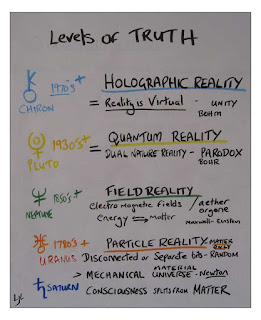 Levels of TRUTH
1970's + HOLOGRAPHIC REALITY
CHIRON = Reality is Virtual - UNITY
BOHM
1930's+ QUANTUM REALITY
PLUTO = DUAL NATURE REALITY - PARADOX
BOHR
1850's+ FIELD REALITY
NEPTUNE = Electro Magnetic Fields / aether
orgone
Energy ⇌ Matter
Maxwell - Einstein
1780's + PARTICLE REALITY MATTER ONLY
URANUS Disconnected or Separate bits - RANDOM
> MECHANICAL MATERIAL UNIVERSE - Newton
SATURN CONSCIOUSNESS SPLITS FROM MATTER